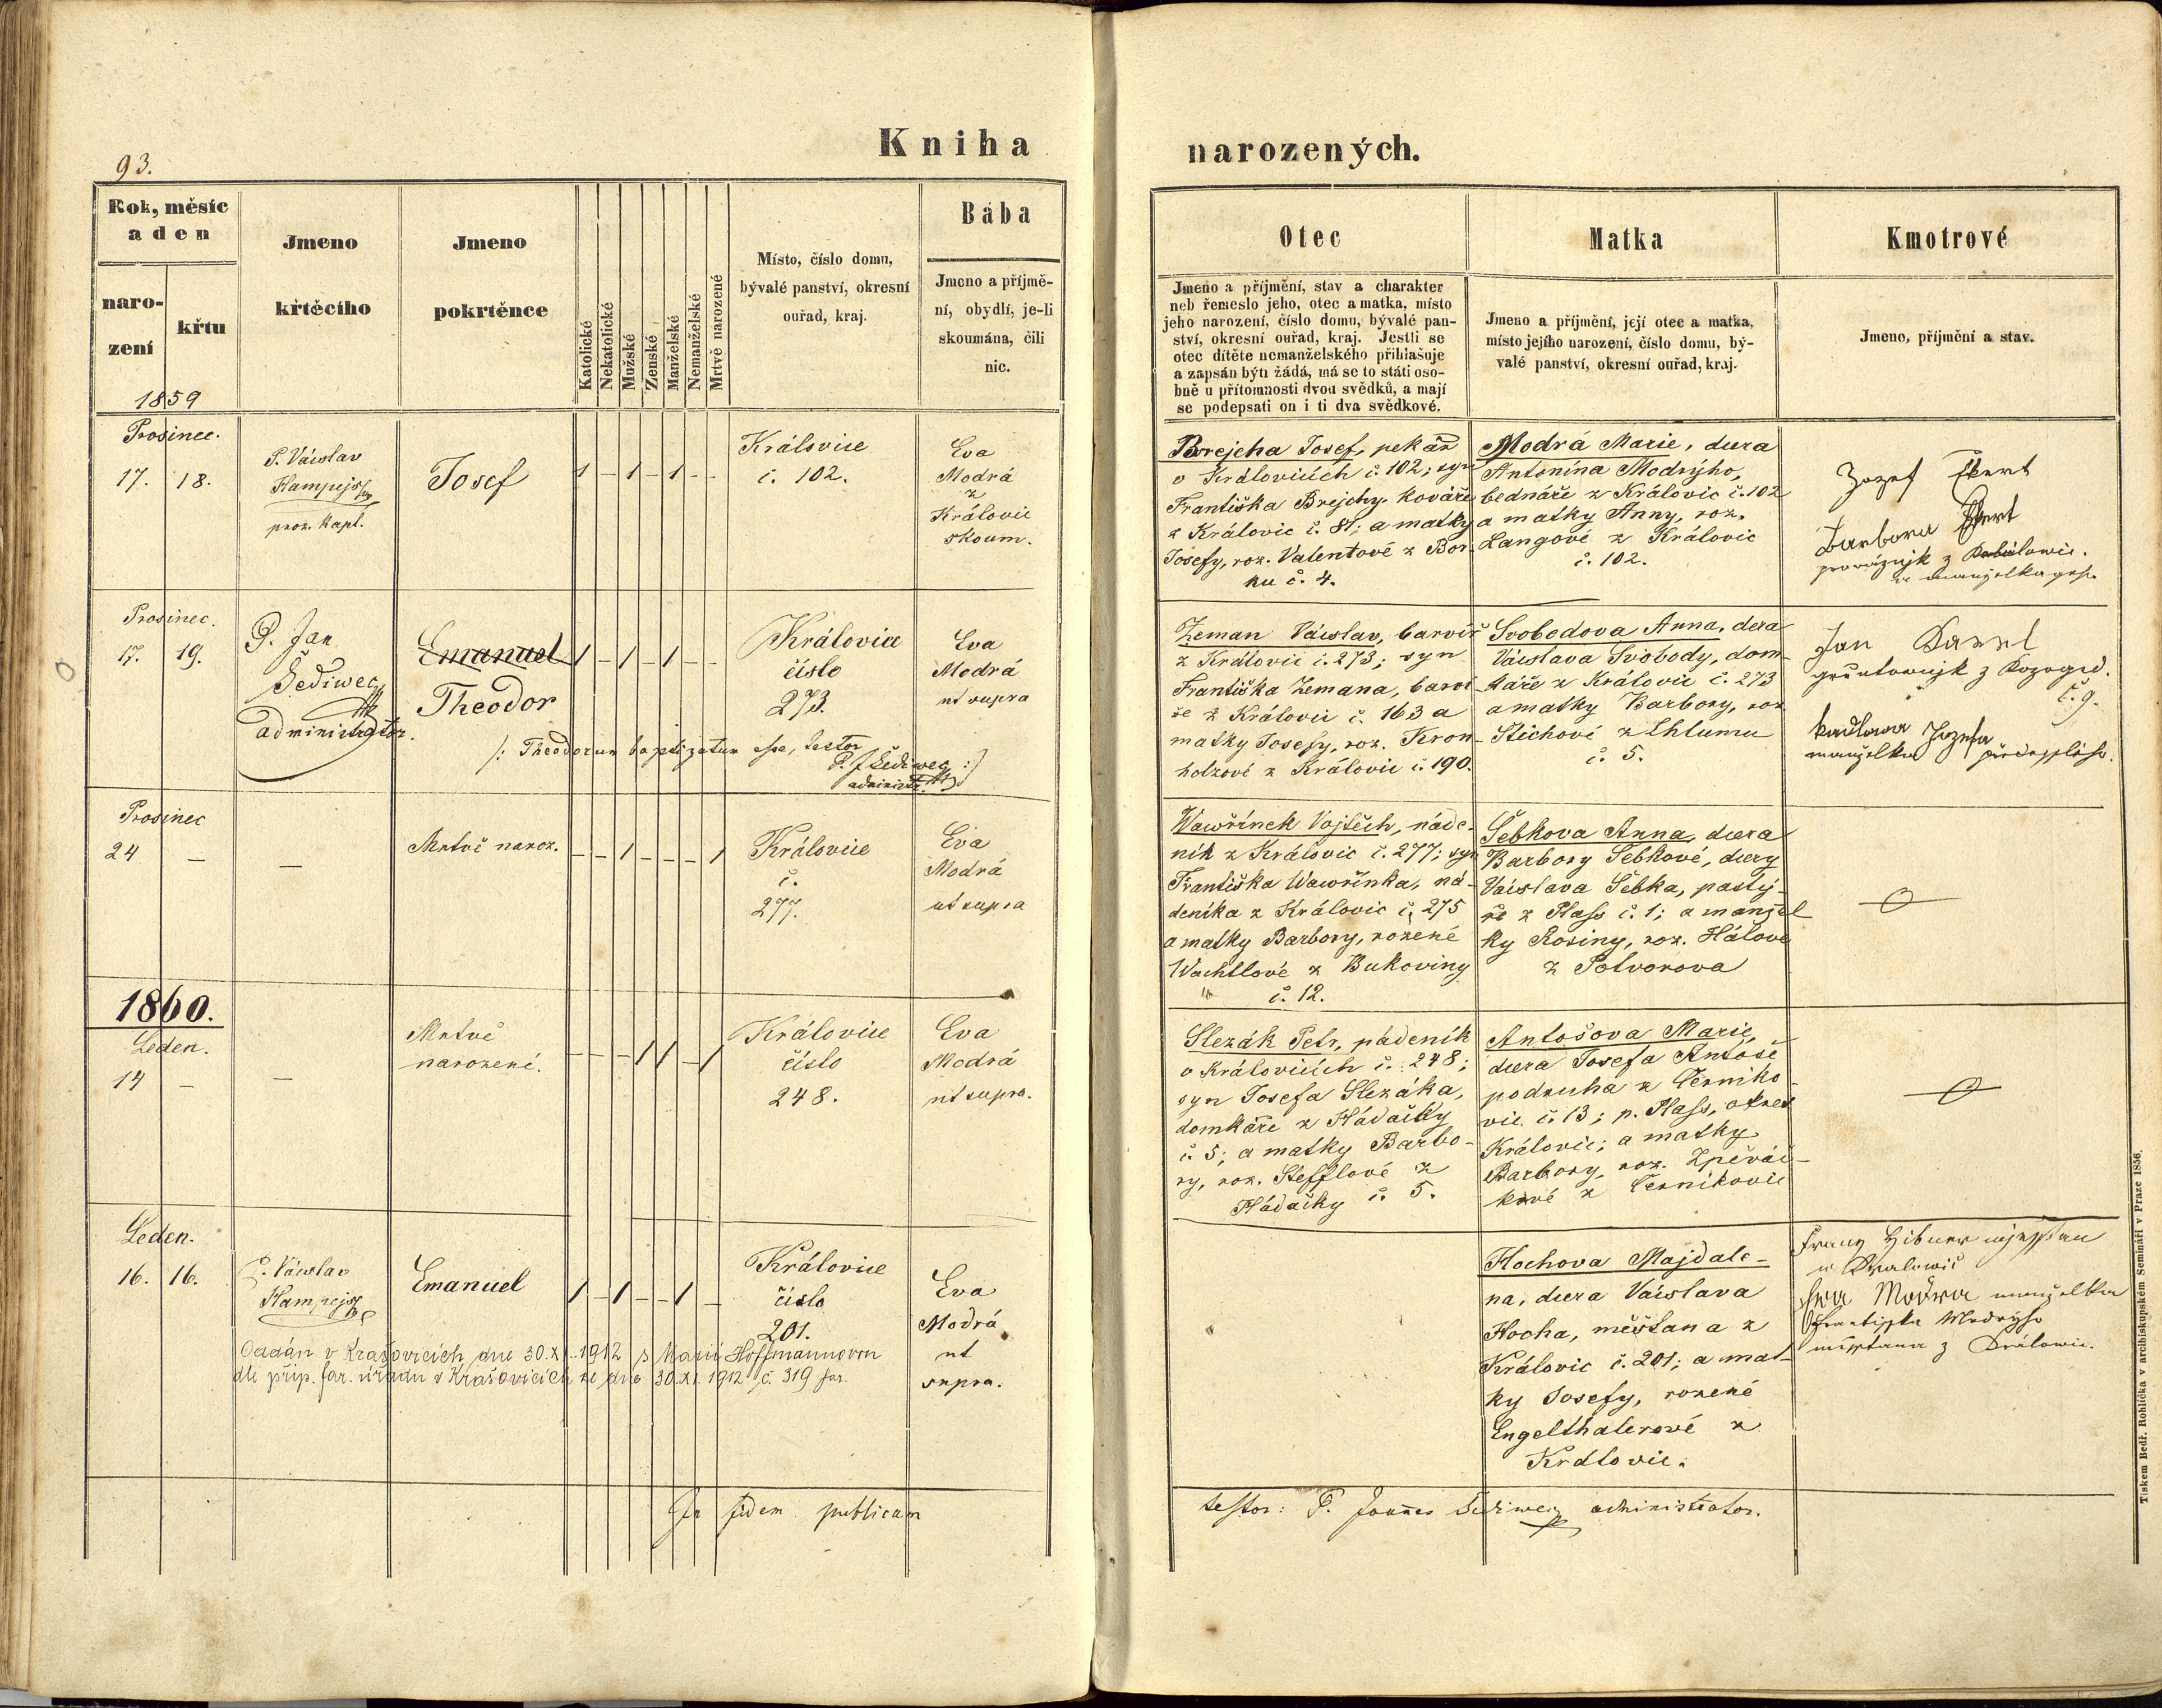 93.
Kniha
narozených.
Rok, měsíc
a den
naro-
zení
křtu
1859
Jmeno
křtěcího
Jmeno
pokrtěnce
Katolické
Nekatolické
Mužské
Ženské
Manželské
Nemanželské
Mrtvě narozené
Místo, číslo domu,
bývalé panství, okresní
ouřad, kraj.
Bába
Jmeno a příjmě-
ní, obydlí, je-li
skoumána, čili
nic.
Otec
Jmeno a příjmění, stav a charakter
neb řemeslo jeho, otec a matka, místo
jeho narození, číslo domu, bývalé pan-
ství, okresní ouřad, kraj. Jestli se
otec dítěte nemanželského přihlašuje
a zapsán býti žádá, má se to státi oso-
bně u přítomnosti dvou svědků, a mají
se podepsati on i ti dva svědkové.
Matka
Jmeno a příjmění, její otec a matka,
místo jejího narození, číslo domu, bý-
valé panství, okresní ouřad, kraj.
Kmotrové
Jmeno, příjmění a stav.
Prosinec.
17. 18.
P. Václav
Hampejs
kapl.
Josef
1 - 1 - 1 - -
Královice
č. 102.
Eva
Modrá
z
Královic
skoum.
Brejcha Josef, pekař
v Královicích č. 102; syn
Františka Brejchy, kováře
z Královic č. 81; a matky
Josefy, roz. Valentové z Bor-
ku č. 4.
Modrá Marie, dcera
Antonína Modrýho,
bednáře z Královic č. 102
a matky Anny, roz.
Langové z Královic
č. 102.
Jozef Ebert
Barbora Ebert
provázník z Královic.
a manželka
Prosinec.
17. 19.
P. Jan
Šediwec
administrator.
Emanuel
Theodor
1 - 1 - 1 - -
Královice
číslo
273.
Eva
Modrá
ut supra
/: Theodorum baptizatum esse, testor
P. J. Šediwec :/
administr.
Zeman Václav, barvíř
z Královic č. 273; syn
Františka Zemana, barví-
ře z Královic č. 163 a
matky Josefy, roz. Kron-
holzové z Královic č. 190.
Svobodova Anna, dcera
Václava Svobody, dom-
káře z Královic č. 273
a matky Barbory, roz
Stichové z Chlumu
č. 5.
Jan
gruntovnjk z Kozoged.
č. 9.
Jozefa
manželka předešlého.
Prosinec
24 - -
Mrtvě naroz.
- - 1 - - - 1
Královice
č.
277.
Eva
Modrá
ut supra
Wawřínek Vojtěch, náde-
ník z Královic č. 277; syn
Františka Wawřínka, ná-
deníka z Královic č. 275
a matky Barbory, rozené
Wachtlové z Bukoviny
č. 12.
Šebkova Anna, dcera
Barbory Šebkové, dcery
Václava Šebka, pastý-
ře z Plass č. 1; a manžel
ky Rosiny, roz. Hálove
z Potvorova
1860.
Leden.
14 - -
Mrtvě
narozené.
- - - 1 1 - 1
Královice
číslo
248.
Eva
Modrá
ut supra.
Slezák Petr, nádeník
v Královicích č. 248;
syn Josefa Slezáka,
domkáře z Hádačky
č. 5; a matky Barbo-
ry, roz. Stefflové z
Hádačky č. 5.
Antošova Marie,
dcera Josefa Antoše
podruha z Černiko-
vic č. 13; p. Plass, okres
Královic; a matky
Barbory, roz. Zpěváč-
kové z Černikovic
Leden.
16. 16.
P. Václav
Hampejs
Emanuel
1 - 1 - - 1 -
Královice
číslo
201.
Eva
Modrá
ut
supra.
Oddán v Krašovicích dne 30.XI.1912 s Marií Hoffmannovou
dle příp. far. úřadu v Krašovicích ze dne 30.XI.1912 č. 319 far.
Hochova Majdale-
na, dcera Václava
Hocha, měšťana z
Královic č. 201; a mat-
ky Josefy, rozené
Engelthalerové z
Královic.
Franz Hibner mješťan
w Kralowic
Ewa Modra manželka
Františka Modrýho
měšťana z Královic.
In fidem publicam
testor: P. Joannes Šediwec administrator.
Tiskem Bedř. Rohlíčka v arcibiskupském Semináři v Praze 1856.